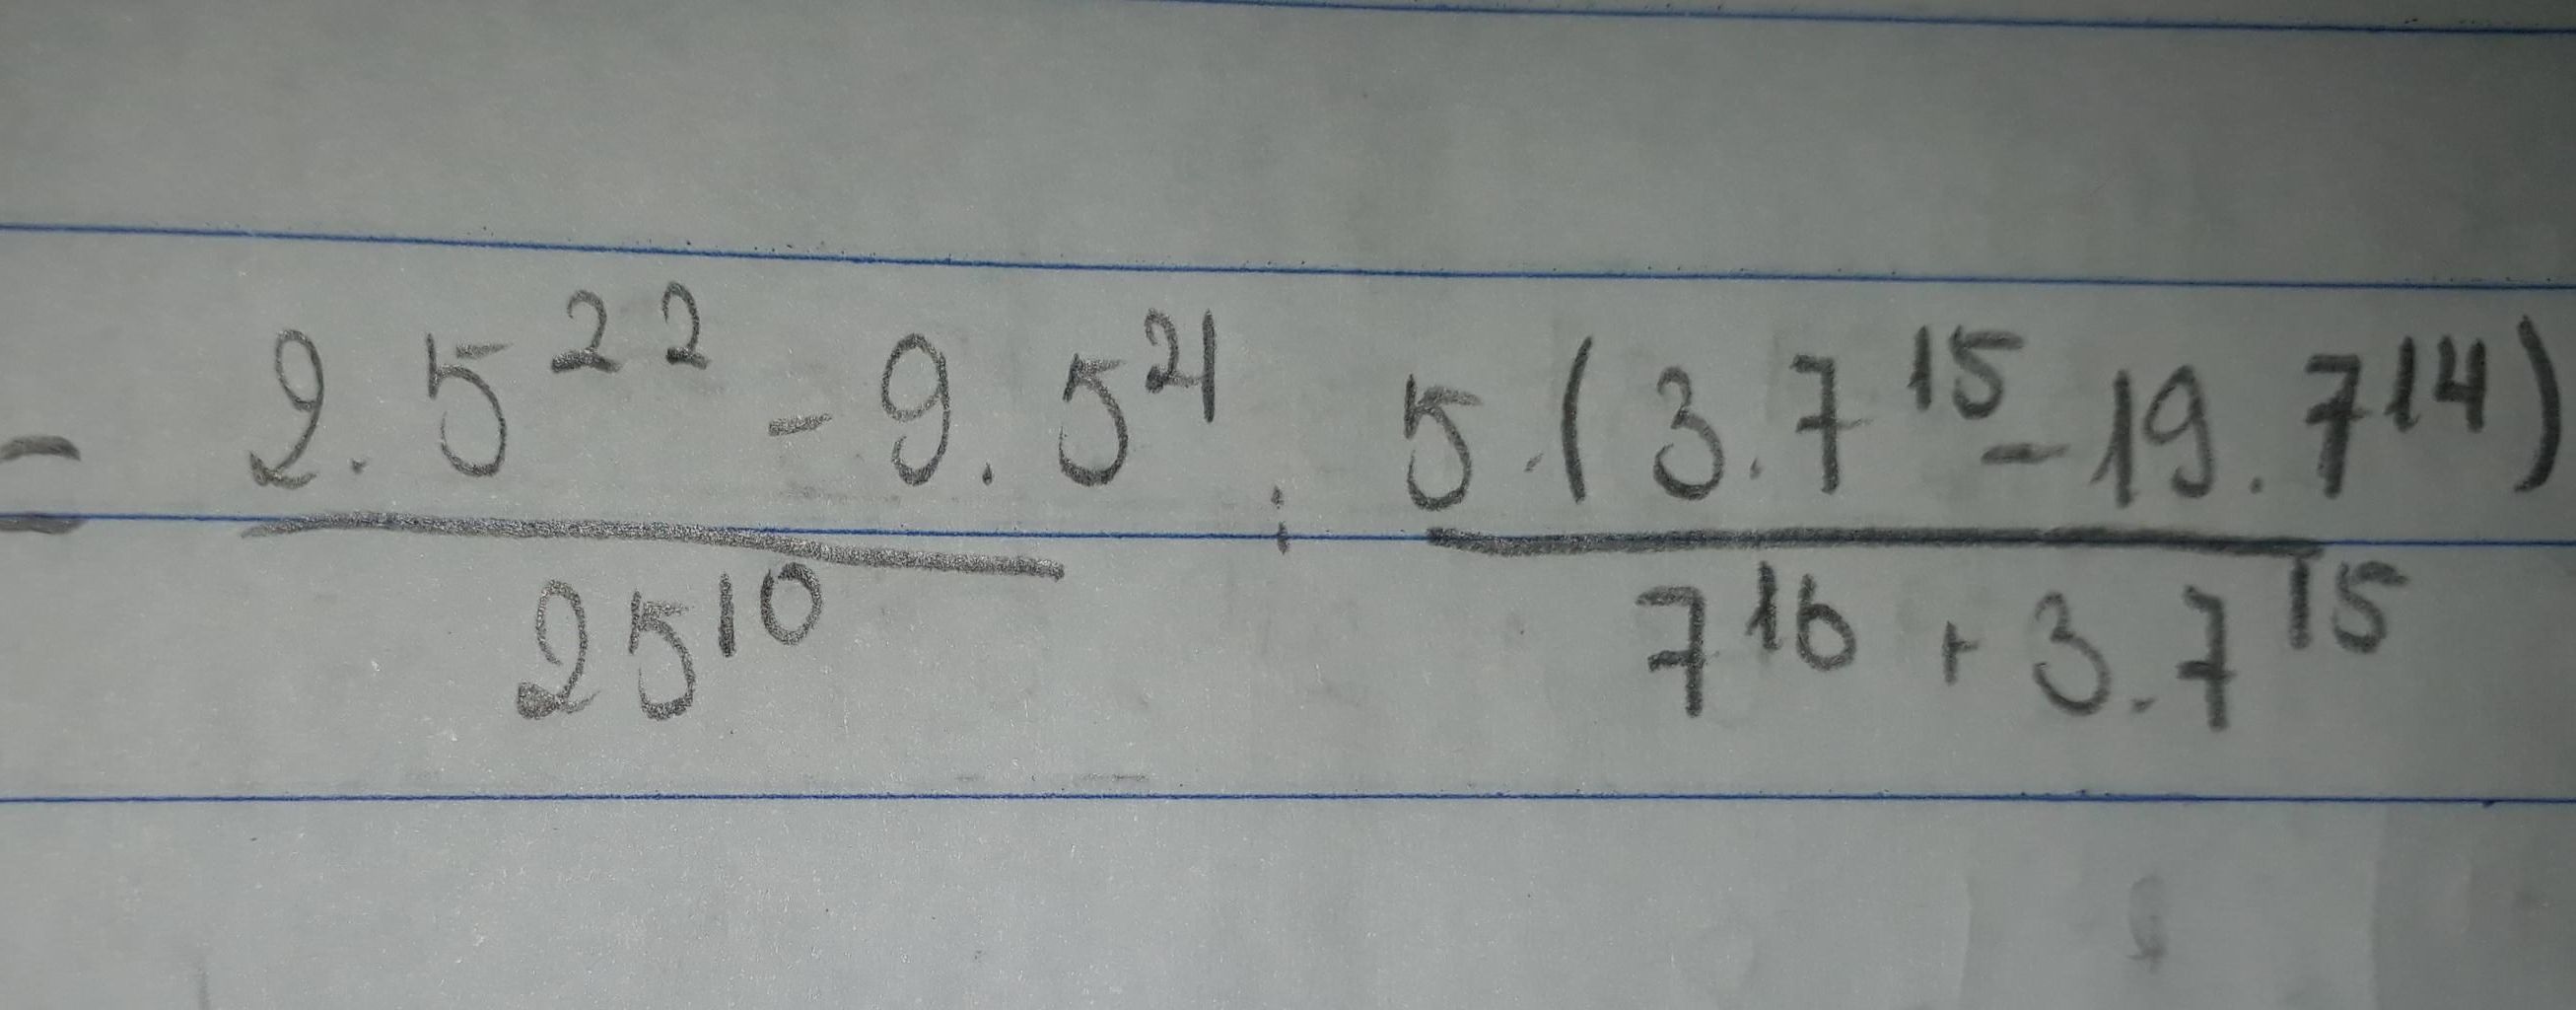 = (2.5^22 - 9.5^21)/(25^10) : (5.(3.7^15 - 19.7^14))/(7^16 + 3.7^15)